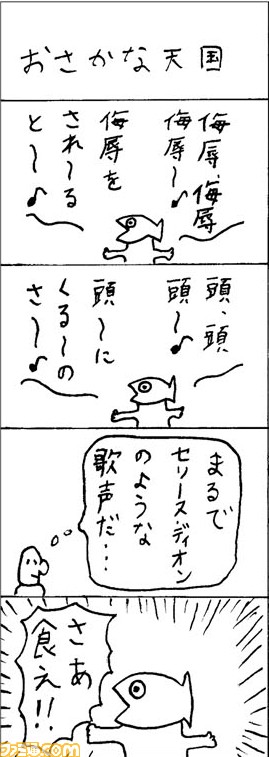 おさかな天国
侮辱、侮辱
侮辱〜♪
侮辱を
され〜る
と〜♪
頭、頭
頭〜♪
頭〜に
くる〜の
さ〜♪
まるで
セリーヌ・ディオン
のような
歌声だ…
さあ
食え!!
ファミ通.com